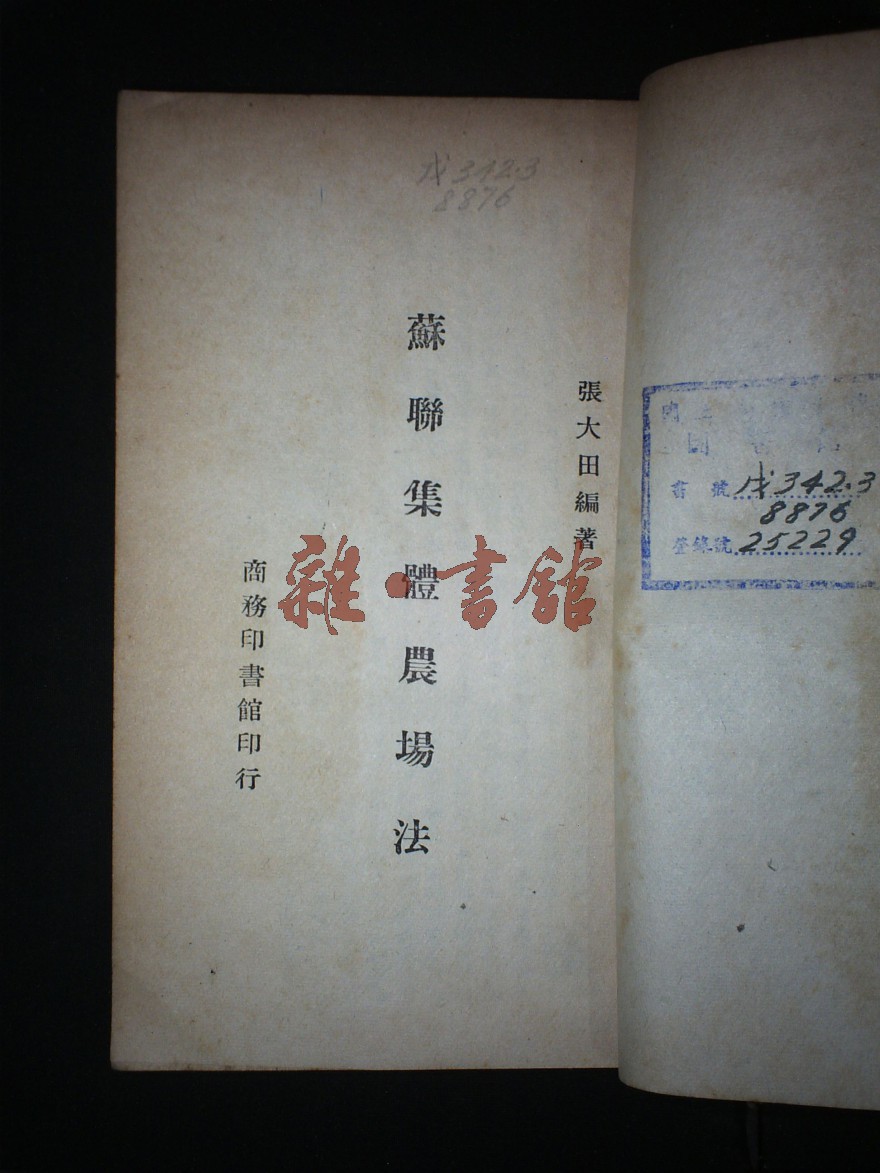 戊342.3
8876
張大田編著
蘇聯集體農場法
商務印書館印行
雜·書館
書號 戊342.3
8876
登錄號 25229